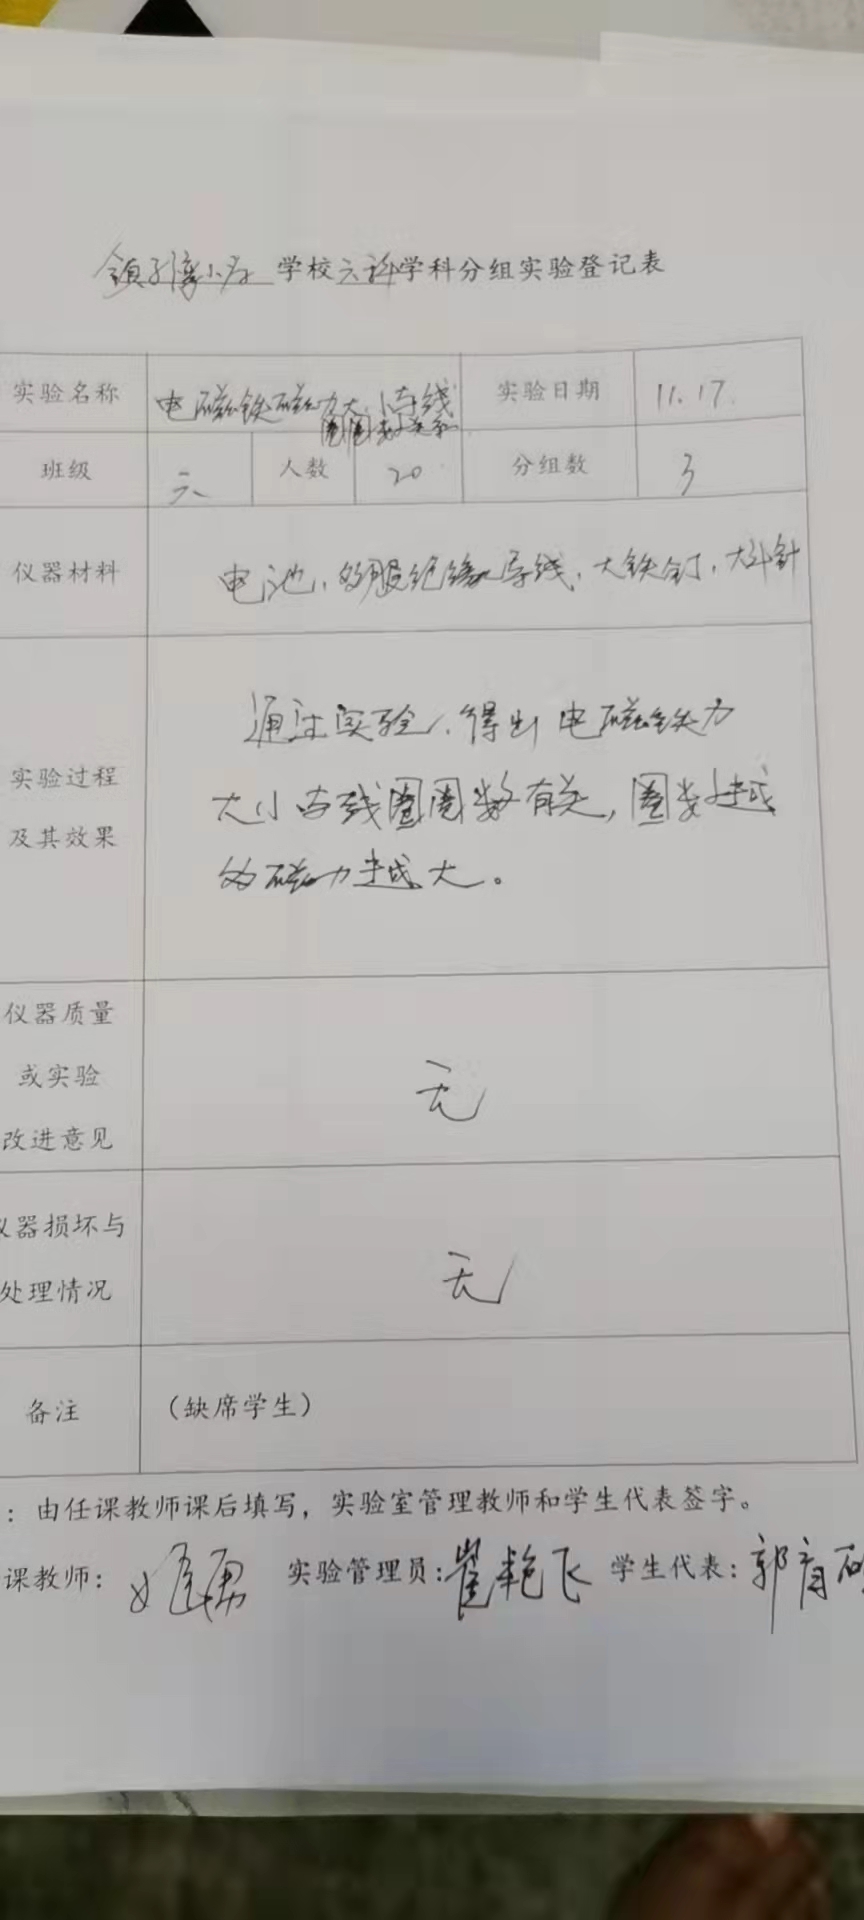 学校六科学科分组实验登记表
实验名称 电磁铁磁力大小与线 实验日期 11.17.
圈圈数关系
班级 六 人数 20 分组数 3
仪器材料 电池、多股绝缘导线、大铁钉、大头针
通过实验、得出电磁铁力
实验过程 大小与线圈圈数有关，圈数越
及其效果 多磁力越大。
仪器质量
或实验 无
改进意见
仪器损坏与
处理情况 无
备注 （缺席学生）
：由任课教师课后填写，实验室管理教师和学生代表签字。
课教师： 实验管理员：崔艳飞 学生代表：郭育